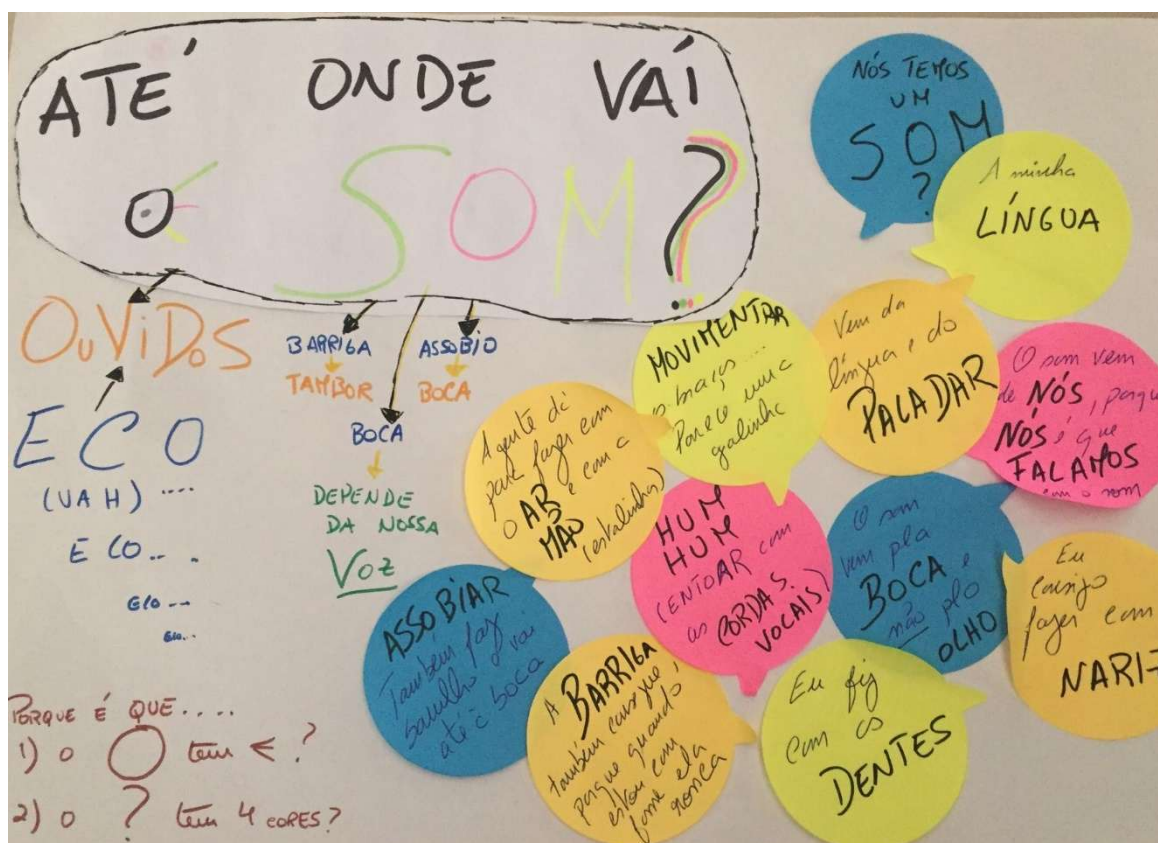 ATÉ ONDE VAÍ
O SOM?
OUVIDOS
ECO
(UAH) ....
ECO... .
Eco...
Eco...
BARRIGA
TAMBOR
ASSOBIO
BOCA
BOCA
DEPENDE
DA NOSSA
VOZ
PORQUE É QUE....
1) O O tem < ?
2) O ? tem 4 CORES?
NÓS TEMOS
UM
SOM
?
A minha
LÍNGUA
MOVIMENTAR
o braço....
Parece uma
galinha
Vem da
língua e do
PALADAR
O som vem
de NÓS, porque
NÓS é que
FALAMOS
com o som
A gente dá
para fazer com
o AR e com a
MÃO (estalinhos)
HUM
HUM
(ENTOAR com
as CORDAS
VOCAIS)
O som
vem pla
BOCA e
não plo
OLHO
Eu
consigo
fazer com
NARIZ
ASSOBIAR
Também faz
barulho e vai
até à boca
A BARRIGA
também consegue,
porque quando
estou com
fome ela
ronca
Eu fiz
com os
DENTES